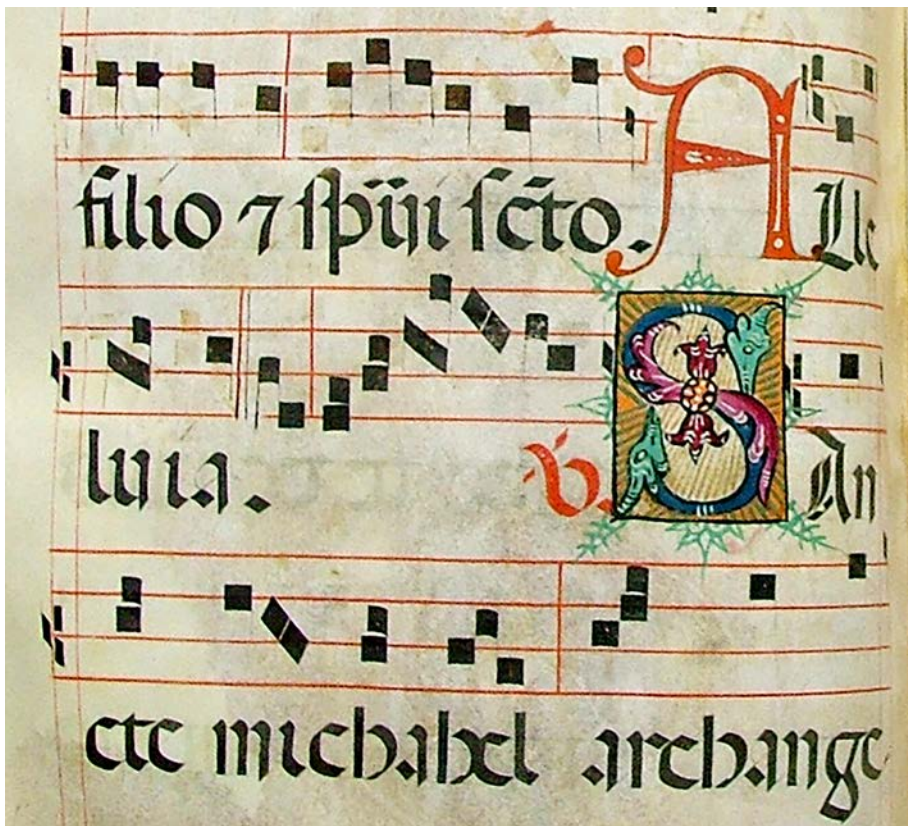 filio ⁊ sp̄ui sc̄to. A Lle
luia. ℣. S An
cte michahel archange